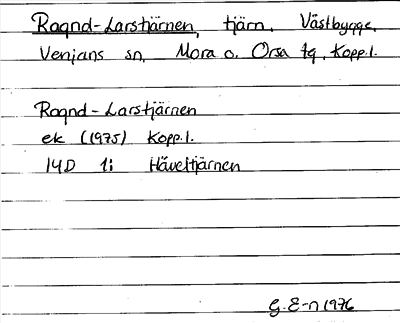 Ragnd-Larstjärnen, tjärn, Västbygge,
Venjans sn, Mora o. Orsa tg, Kopp.l.
Ragnd-Larstjärnen
ek (1975) Kopp.l.
14D 1i Häveltjärnen
G. E-n 1976